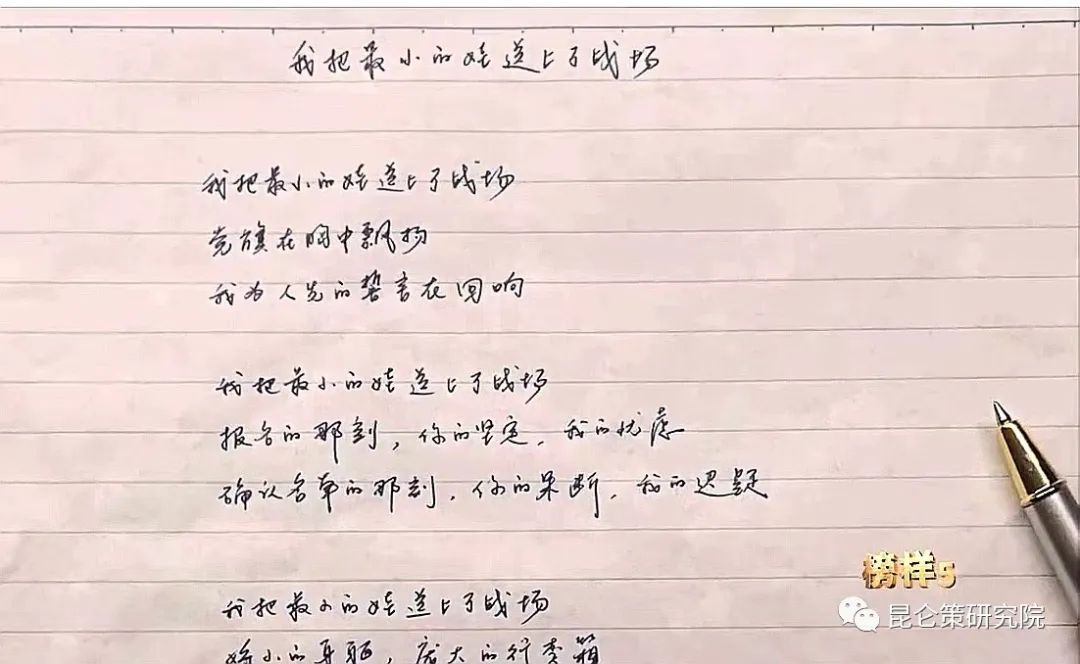 我把最小的娃送上了战场
我把最小的娃送上了战场
党旗在胸中飘扬
我为人先的誓言在回响
我把最小的娃送上了战场
报名的那刻，你的坚定，我的忧虑
确认名单的那刻，你的果断，我的迟疑
我把最小的娃送上了战场
娇小的身躯，庞大的行李箱
榜样5
昆仑策研究院